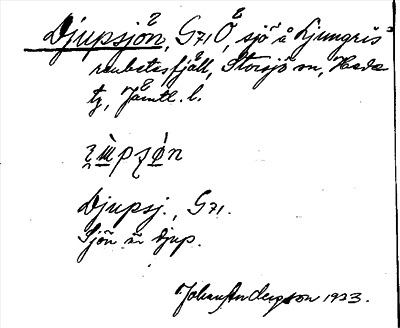 Djupsjön, G71Ö, sjö å Ljungris-
renbetesfjäll, Storsjö sn, Heda
tg, Jämtl. l.
Djupsj., G71.
Sjön är djup.
Johan Anderzson 1933.